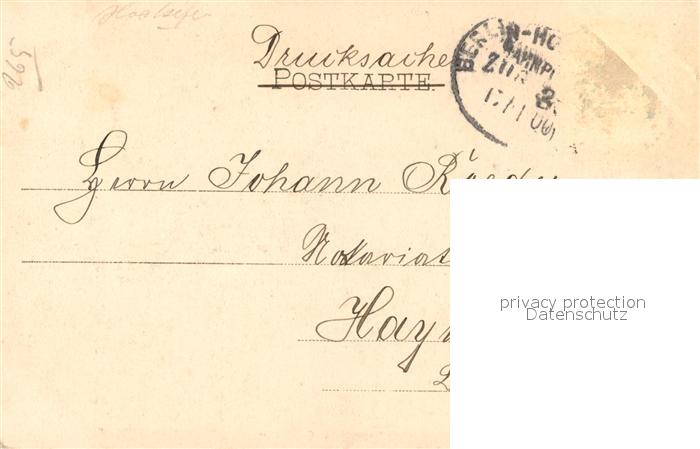 265
Drucksache
POSTKARTE
BERLIN-HO
BAHNP
ZUG 2
Herrn Johann
Notariat
Hay
privacy protection
Datenschutz